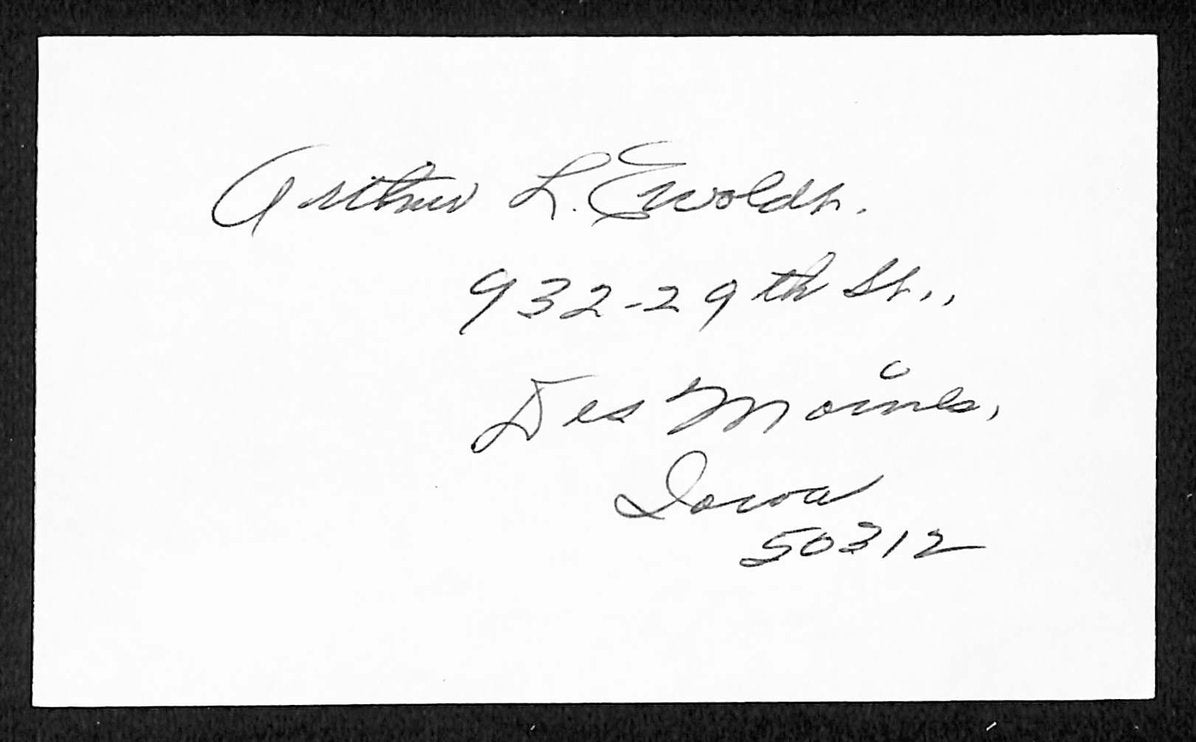 Arthur L. Ewoldt.
932-29th St.,
Des Moines,
Iowa
50312